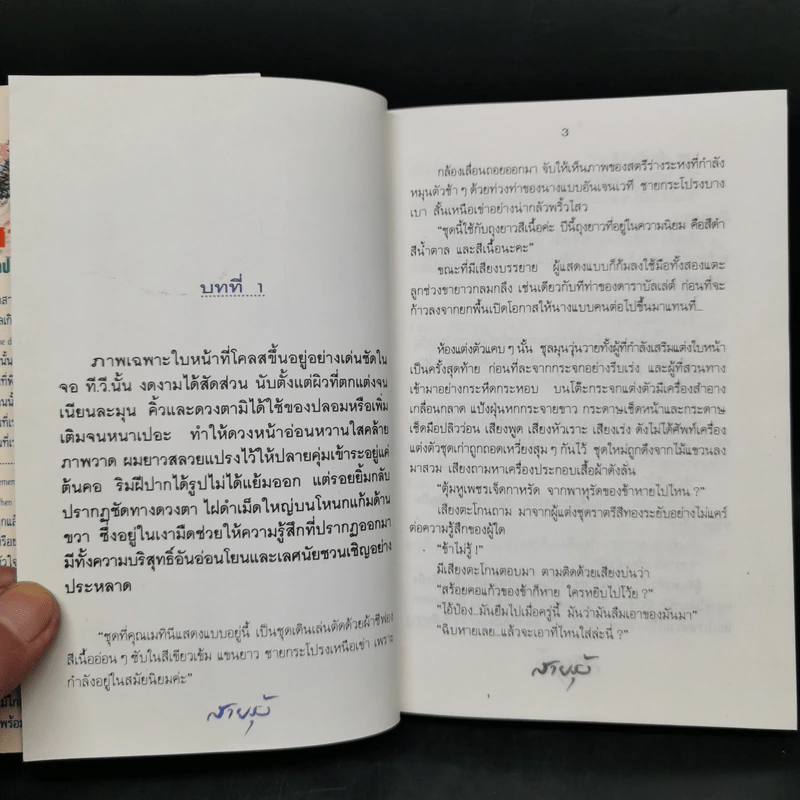 บทที่ 1
ภาพเฉพาะใบหน้าที่โคลสขึ้นอยู่อย่างเด่นชัดใน
จอ ที.วี.นั้น งดงามได้สัดส่วน นับตั้งแต่ผิวที่ตกแต่งจน
เนียนละมุน คิ้วและดวงตามิได้ใช้ของปลอมหรือเพิ่ม
เติมจนหนาเปอะ ทำให้ดวงหน้าอ่อนหวานใสคล้าย
ภาพวาด ผมยาวสลวยแปรงไว้ให้ปลายคุ่มเข้าระอยู่แค่
ต้นคอ ริมฝีปากได้รูปไม่ได้แย้มออก แต่รอยยิ้มกลับ
ปรากฏชัดทางดวงตา ไฝดำเม็ดใหญ่บนโหนกแก้มด้าน
ขวา ซึ่งอยู่ในเงามืดช่วยให้ความรู้สึกที่ปรากฏออกมา
มีทั้งความบริสุทธิ์อันอ่อนโยนและเลศนัยชวนเชิญอย่าง
ประหลาด
"ชุดที่คุณเมทินีแสดงแบบอยู่นี้ เป็นชุดเดินเล่นตัดด้วยผ้าชีฟอง
สีเนื้ออ่อนๆ ซับในสีเขียวเข้ม แขนยาว ชายกระโปรงเหนือเข่า เพราะ
กำลังอยู่ในสมัยนิยมค่ะ"
3
กล้องเลื่อนถอยออกมา จับให้เห็นภาพของสตรีร่างระหงที่กำลัง
หมุนตัวช้าๆ ด้วยท่วงท่าของนางแบบอันเจนเวที ชายกระโปรงบาง
เบา สั้นเหนือเข่าอย่างน่ากลัวพริ้วไสว
"ชุดนี้ใช้กับถุงยาวสีเนื้อค่ะ ปีนี้ถุงยาวที่อยู่ในความนิยม คือสีดำ
สีน้ำตาล และสีเนื้อนะคะ"
ขณะที่มีเสียงบรรยาย ผู้แสดงแบบก็ก้มลงใช้มือทั้งสองแตะ
ลูกช่วงขายาวกลมกลึง เช่นเดียวกับทีท่าของดาราบัลเล่ต์ ก่อนที่จะ
ก้าวลงจากยกพื้นเปิดโอกาสให้นางแบบคนต่อไปขึ้นมาแทนที่...
ห้องแต่งตัวแคบๆ นั้น ชุลมุนวุ่นวายทั้งผู้ที่กำลังเสริมแต่งใบหน้า
เป็นครั้งสุดท้าย ก่อนที่จะละจากกระจกอย่างรีบเร่ง และผู้ที่สวนทาง
เข้ามาอย่างกระหืดกระหอบ บนโต๊ะกระจกแต่งตัวมีเครื่องสำอาง
เกลื่อนกลาด แป้งฝุ่นหกกระจายขาว กระดาษเช็ดหน้าและกระดาษ
เช็ดมือปลิวว่อน เสียงพูด เสียงหัวเราะ เสียงเร่ง ดังไม่ได้ศัพท์เครื่อง
แต่งตัวชุดเก่าถูกถอดเหวี่ยงสุมๆ กันไว้ ชุดใหม่ถูกดึงจากไม้แขวนลง
มาสวม เสียงถามหาเครื่องประกอบเสื้อผ้าดังลั่น
"ตุ้มหูเพชรเจ็ดกาหรัด จากพาหุรัดของข้าหายไปไหน ?"
เสียงตะโกนถาม มาจากผู้แต่งชุดราตรีสีทองระยับอย่างไม่แคร์
ต่อความรู้สึกของผู้ใด
"ข้าไม่รู้ !"
มีเสียงตะโกนตอบมา ตามติดด้วยเสียงบ่นว่า
"สร้อยคอแก้วของข้าก็หาย ใครหยิบไปโว้ย ?"
"ไอ้ป่อง...มันยืมไปเมื่อครู่นี้ มันว่ามันลืมเอาของมันมา"
"ฉิบหายเลย...แล้วจะเอาที่ไหนใส่ล่ะนี่ ?"